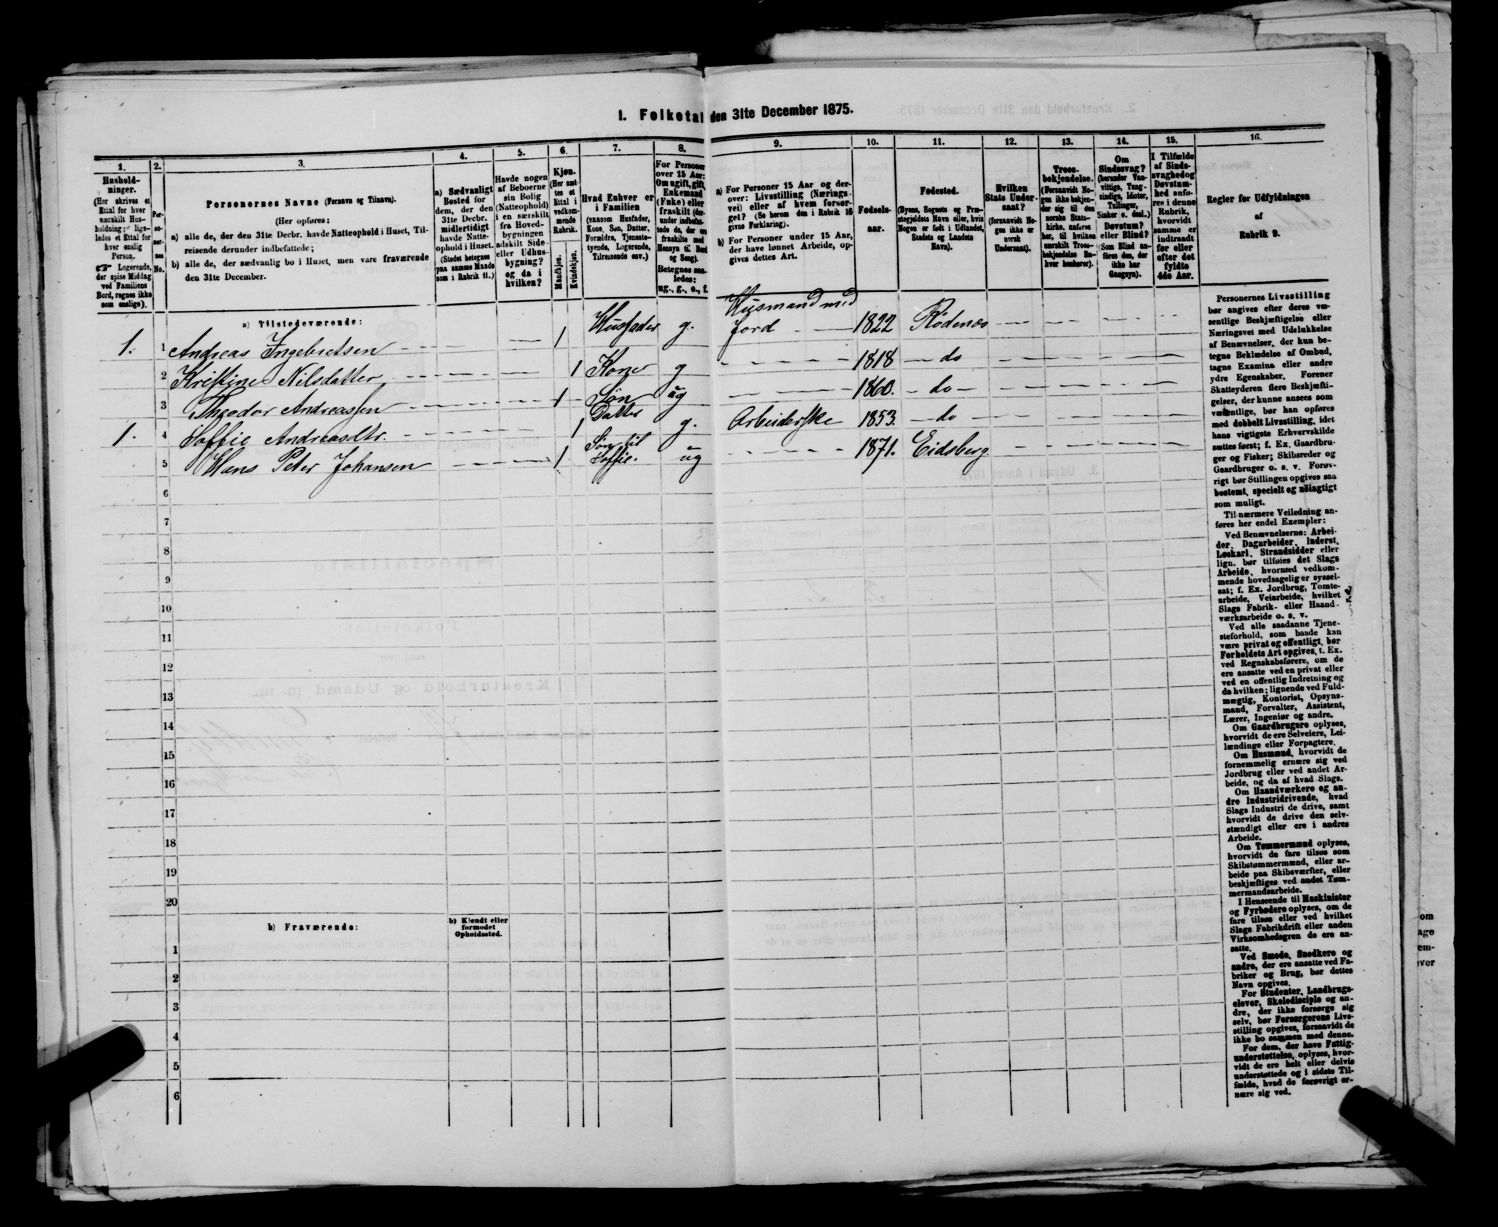 1. Folketal den 31te December 1875.
1.
Hushold-
ninger.
(Her skrives et
Ettal for hver
særskilt Hus-
holdning; lige-
ledes et Ettal for
hver enslig
Person.
☞ Logerende,
der spise Middag
ved Familiens
Bord, regnes ikke
som enslige).
2.
Per-
so-
ner-
nes
No.
3.
Personernes Navne (Fornavn og Tilnavn).
(Her opføres:
a) alle de, der den 31te Decbr. havde Natteophold i Huset, Til-
reisende derunder indbefattede;
b) alle de, der sædvanlig bo i Huset, men vare fraværende
den 31te December.
4.
a) Sædvanligt
Bosted for
dem, der den
31te Decbr.
midlertidigt
havde Natte-
ophold i Huset.
(Stedet betegnes
paa samme Maade
som i Rubrik 11.)
5.
Havde nogen
af Beboerne
sin Bolig
(Natteophold)
i en særskilt
fra Hoved-
bygningen
adskilt Side-
eller Udhus-
bygning?
og da i
hvilken?
6.
Kjøn.
(Her sæt-
tes et
Ettal i
vedkom-
mende
Rubrik.
Mandkjøn.
Kvindekjøn.
7.
Hvad Enhver er
i Familien
(saasom Husfader,
Kone, Søn, Datter,
Forældre, Tjeneste-
tyende, Logerende,
Tilreisende osv.)
8.
For Personer
over 15 Aar:
Om ugift, gift,
Enkemand
(Enke) eller
fraskilt (der-
under indbefat-
tede de, der ere
fraskilte med
Hensyn til Bord
og Seng).
Betegnes saa-
ledes:
ug., g., e., f.
9.
a) For Personer 15 Aar og der-
over: Livsstilling (Nærings-
vei) eller af hvem forsør-
get? (Se herom den i Rubrik 16
givne Forklaring).
b) For Personer under 15 Aar,
der have lønnet Arbeide, op-
gives dettes Art.
10.
Fødsels-
aar.
11.
Fødested.
(Byens, Sognets og Præ-
stegjeldets Navn eller, hvis
Nogen er født i Udlandet,
Stedets og Landets
Navn).
12.
Hvilken
Stats Under-
saat?
(forsaavidt No-
gen ikke er
norsk
Undersaat).
13.
Troes-
bekjendelse.
(Forsaavidt No-
gen ikke bekjen-
der sig til den
norske Stats-
kirke, anføres
her, til hvilken
særskilt Troes-
bekjendelse En-
hver henhører).
14.
Om
Sindssvag?
(herunder Van-
vittige, Tung-
sindige, Idioter,
Tullinger,
Sinker o. desl.)
Døvstum?
eller Blind?
(Som Blind an-
føres den, der
ikke har
Gangsyn).
15.
I Tilfælde
af Sinds-
svaghed og
Døvstum-
hed anfø-
res i denne
Rubrik,
hvorvidt
samme er
indtraadt
før eller
efter det
fyldte
4de Aar.
16.
Regler for Udfyldningen
af
Rubrik 9.
a) Tilstedeværende:
1. 1 Andreas Ingebretsen 1 Husfader g. Husmand med Jord 1822 Rödenæs
2 Kristine Nilsdatter 1 Kone g 1818 do
3 Theodor Andreassen 1 Søn ug 1860. do
1. 4 Soffie Andreasdtr. 1 Datter g. Arbeiderske 1853. do
5 Hans Peter Johansen 1 Søn til Soffie. ug 1871. Eidsberg
6
7
8
9
10
11
12
13
14
15
16
17
18
19
20
b) Fraværende:
b) Kjendt eller
formodet
Opholdssted.
1
2
3
4
5
6
Personernes Livsstilling
bør angives efter deres væ-
sentlige Beskjæftigelse eller
Næringsvei med Udelukkelse
af Benævnelser, der kun be-
tegne Beklædelse af Ombud,
tagne Examina eller andre
ydre Egenskaber. Forener
Skatteyderen flere Beskjæfti-
gelser, der kunne ansees som
væsentlige, bør han opføres
med dobbelt Livsstilling, idet
hans vigtigste Erhvervskilde
sættes først; f. Ex. Gaardbru-
ger og Fisker; Skibsreder og
Gaardbruger o. s. v. Forøv-
rigt bør Stillingen opgives saa
bestemt, specielt og nöiagtigt
som muligt.
Til nærmere Veiledning an-
føres her endel Exempler:
Ved Benævnelserne: Arbei-
der, Dagarbeider, Inderst,
Løskarl, Strandsidder eller
lign. bør tilføies det Slags
Arbeide, hvormed vedkom-
mende hovedsagelig er syssel-
sat; f. Ex. Jordbrug, Tomte-
arbeide, Veiarbeide, hvilket
Slags Fabrik- eller Haand-
værksarbeide o. s. v.
Ved alle saadanne Tjene-
steforhold, som baade kan
være privat og offentligt, bør
Forholdets Art opgives, t. Ex.
ved Regnskabsførere, om de
ere ansatte ved en privat eller
ved en offentlig Indretning og
da hvilken; lignende ved Fuld-
mægtig, Kontorist, Opsyns-
mand, Forvalter, Assistent,
Lærer, Ingeniør og andre.
Om Gaardbrugere oplyses,
hvorvidt de ere Selveiere, Lei-
lændinge eller Forpagtere.
Om Husmænd, hvorvidt de
fornemmelig ernære sig ved
Jordbrug eller ved andet Ar-
beide, og da af hvad Slags.
Om Haandværkere og an-
dre Industridrivende, hvad
Slags Industri de drive, samt
hvorvidt de drive den selv-
stændigt eller ere i andres
Arbeide.
Om Tømmermænd oplyses,
hvorvidt de fare tilsøs som
Skibstømmermænd, eller ar-
beide paa Skibsværfter, eller
beskjæftiges ved andet Tøm-
mermandsarbeide.
I Henseende til Maskinister
og Fyrbødere oplyses, om de
fare tilsøs eller ved hvilket
Slags Fabrikdrift eller anden
Virksomhedsgren de ere an-
satte.
Ved Smede, Snedkere og
andre, der ere ansatte ved Fa-
briker og Brug, bør dettes
Navn opgives.
For Studenter, Landbrugs-
elever, Skoledisciple og an-
dre, der ikke forsørge sig
selv, bør Forsørgerens Livs-
stilling opgives, forsaavidt de
ikke bo sammen med denne.
For dem, der have Fattig-
understøttelse, oplyses, hvor-
vidt de ere helt eller delvis
understøttede og i sidste Til-
fælde, hvad de forøvrigt er-
nære sig ved.